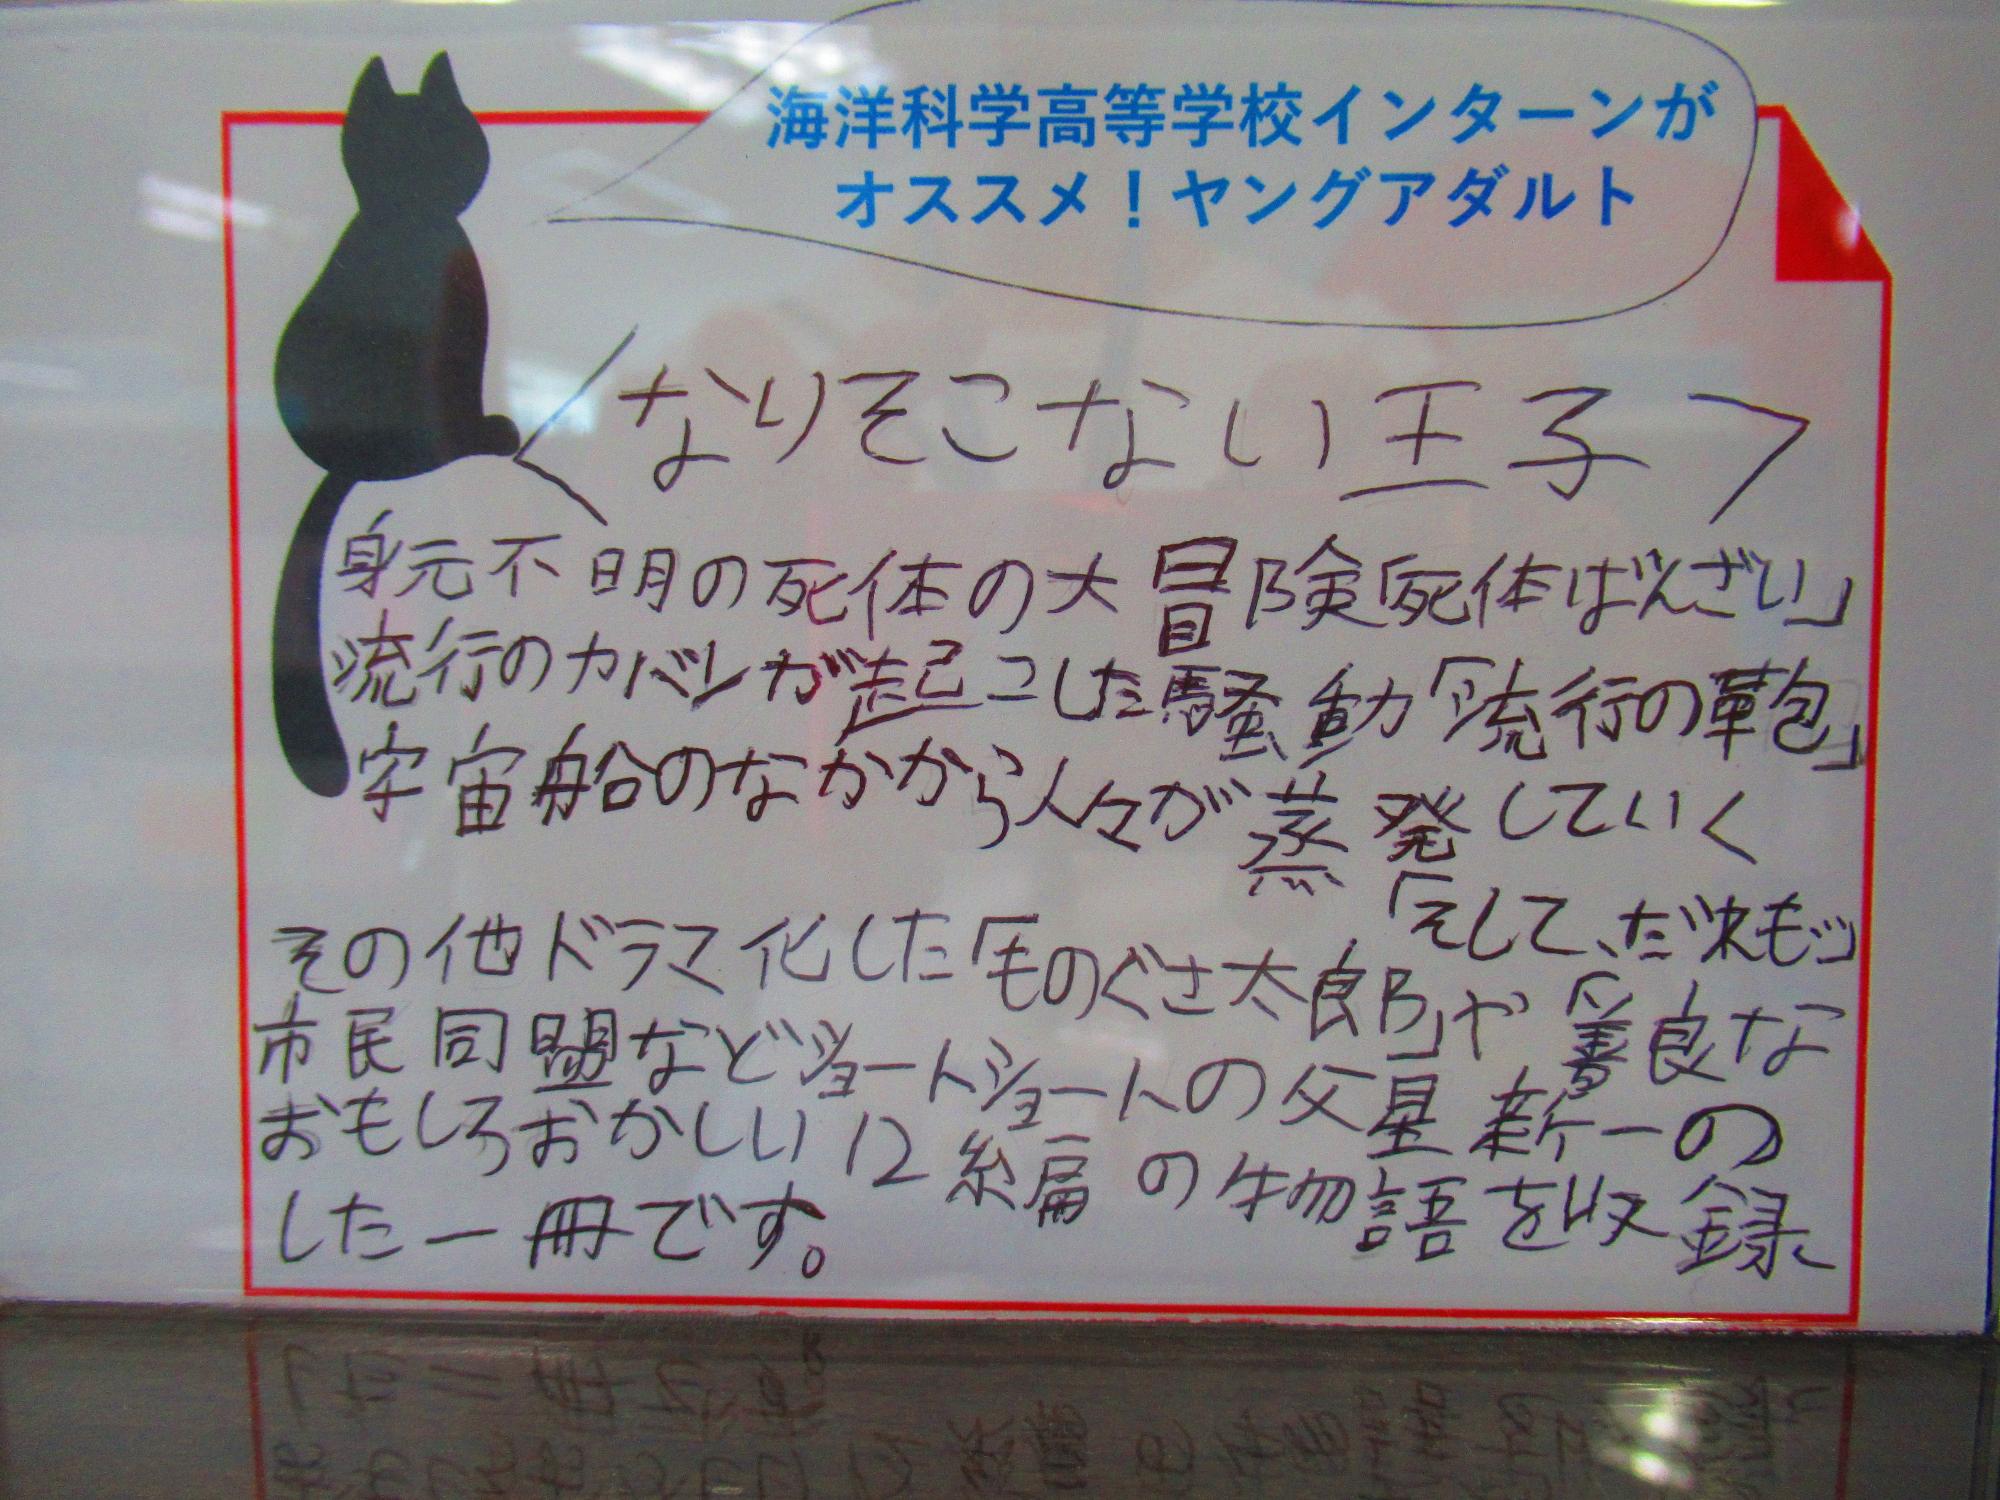 海洋科学高等学校インターンが
オススメ！ヤングアダルト
〈なりそこない王子〉
身元不明の死体の大冒険「死体ばんざい」
流行のカバンが起こした騒動「流行の鞄」
宇宙船のなかから人々が蒸発していく
「そして、だれも…」
その他ドラマ化した「ものぐさ太郎」や「善良な
市民同盟などショートショートの父星新一の
おもしろおかしい12編の物語を収録
した一冊です。